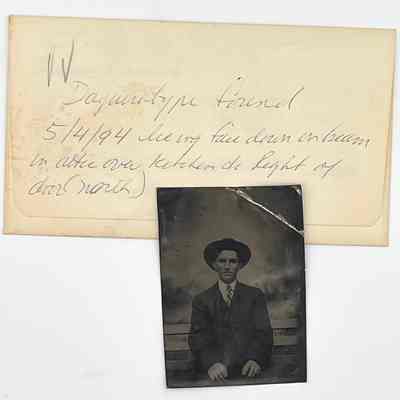 Daguerotype found
5/4/94 lieing face down on beam
in attic over kitchen @ height of
door (north)